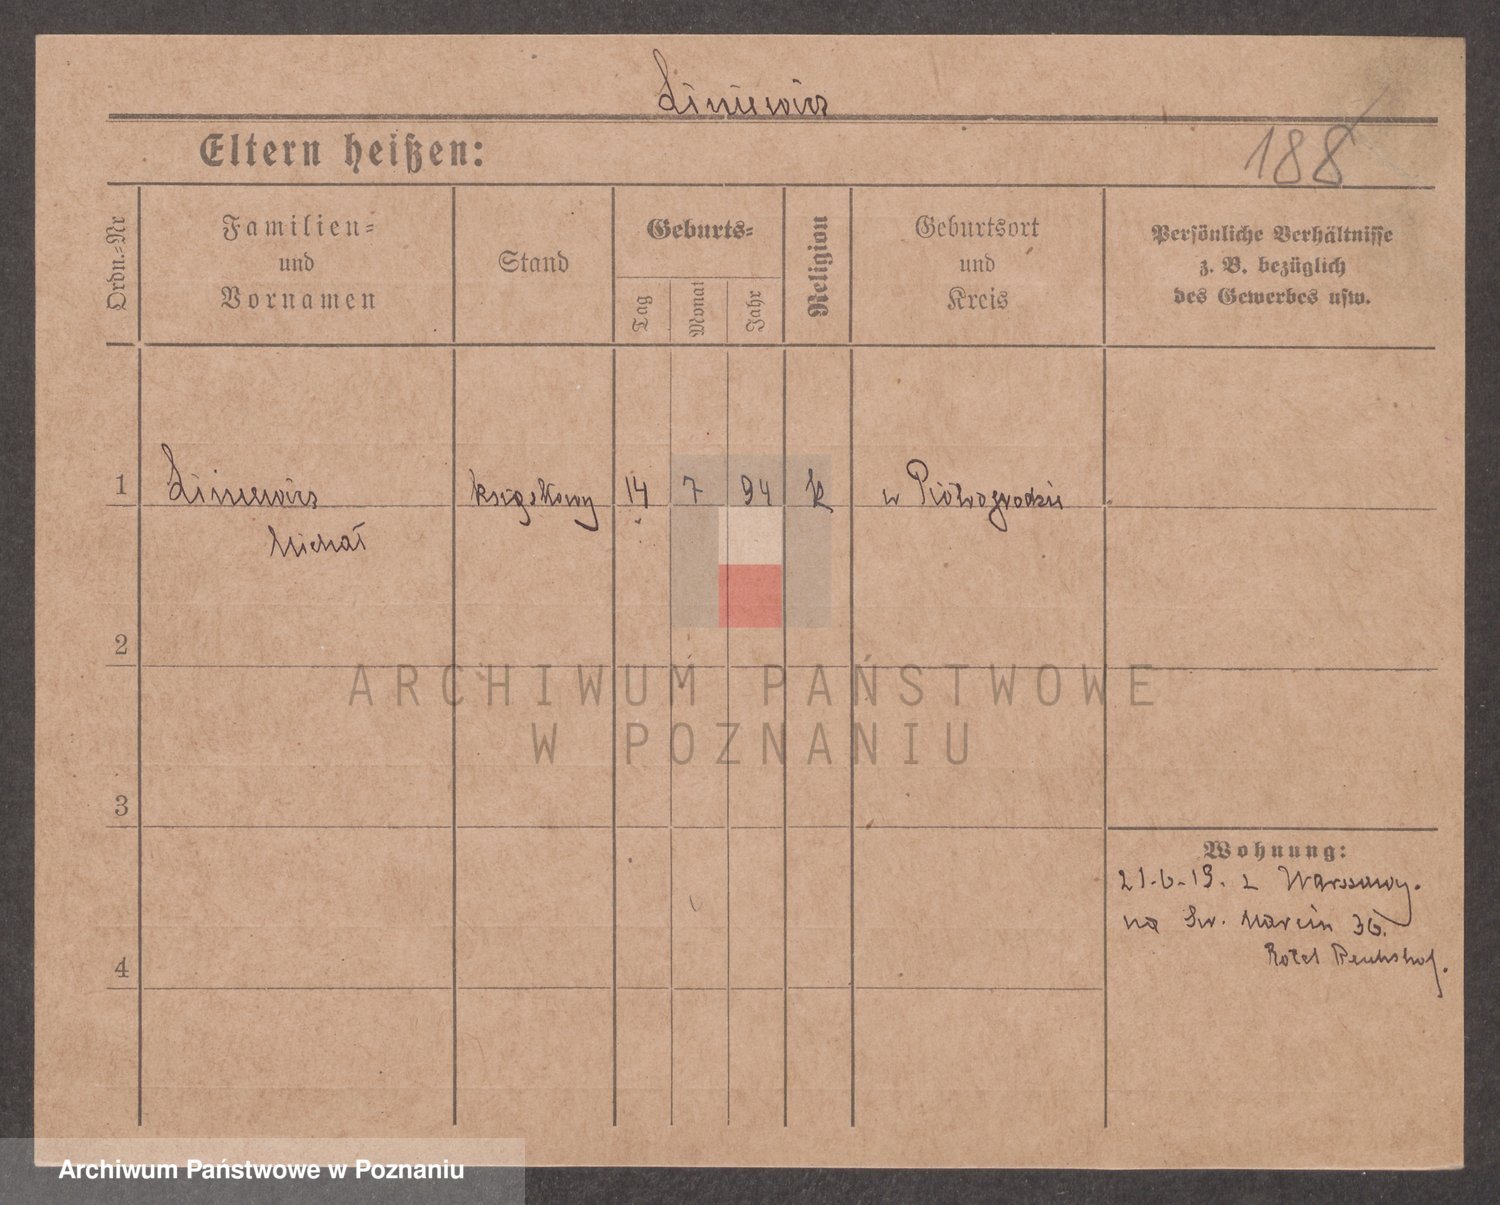 Liniewicz
Eltern heißen:
188
Ordn.-Nr
Familien-
und
Vornamen
Stand
Geburts-
Tag
Monat
Jahr
Religion
Geburtsort
und
Kreis
Persönliche Verhältnisse
z. B. bezüglich
des Gewerbes usw.
1
Liniewicz
Michał
księgowy
14
7
94
k
w Piotrogrodzie
2
3
4
Wohnung:
21.6.19. z Warszawy.
na Św. Marcin 36.
Hotel
ARCHIWUM PAŃSTWOWE
W POZNANIU
Archiwum Państwowe w Poznaniu